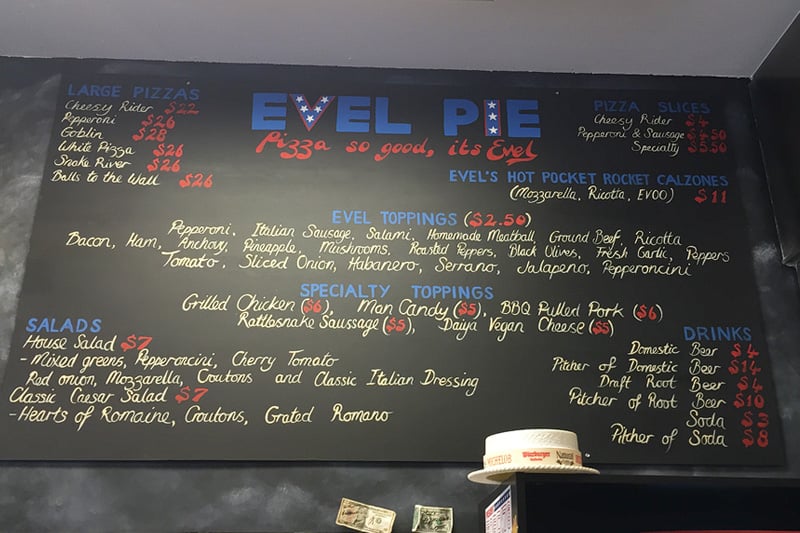 LARGE PIZZAS
Cheesy Rider $22
Pepperoni $26
Goblin $28
White Pizza $26
Snake River $26
Balls to the Wall $26
EVEL PIE
Pizza so good, its Evel
PIZZA SLICES
Cheesy Rider $4
Pepperoni & Sausage $4.50
Specialty $5.50
EVEL'S HOT POCKET ROCKET CALZONES
(Mozzarella, Ricotta, EVOO) $11
EVEL TOPPINGS ($2.50)
Pepperoni, Italian Sausage, Salami, Homemade Meatball, Ground Beef, Ricotta
Bacon, Ham, Anchovy, Pineapple, Mushrooms, Roasted Peppers, Black Olives, Fresh Garlic, Peppers
Tomato, Sliced Onion, Habanero, Serrano, Jalapeno, Pepperoncini
SPECIALTY TOPPINGS
Grilled Chicken ($6), Man Candy ($5), BBQ Pulled Pork ($6)
Rattlesnake Saussage ($5), Daiya Vegan Cheese ($5)
SALADS
House Salad $7
- Mixed greens, Pepperoncini, Cherry Tomato
Red onion, Mozzarella, Croutons and Classic Italian Dressing
Classic Caesar Salad $7
- Hearts of Romaine, Croutons, Grated Romano
DRINKS
Domestic Beer $4
Pitcher of Domestic Beer $14
Draft Root Beer $4
Pitcher of Root Beer $10
Soda $3
Pitcher of Soda $8
Natural